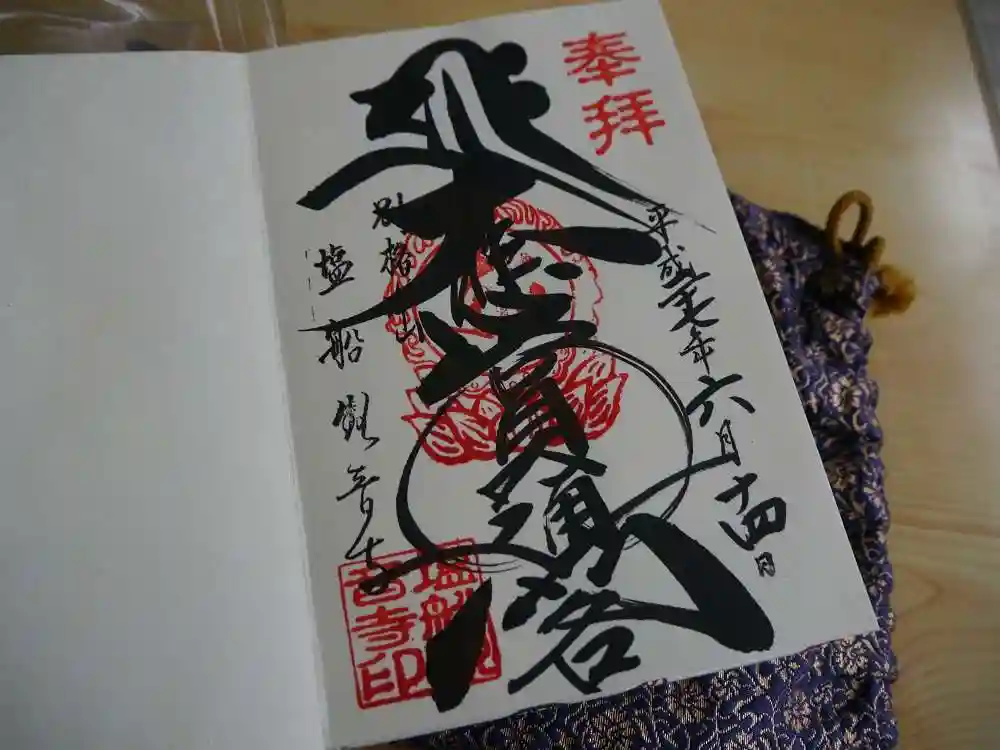 奉拝
平成二十七年六月十四日
圓通閣
別格本山
塩船観音寺
塩船観音寺印